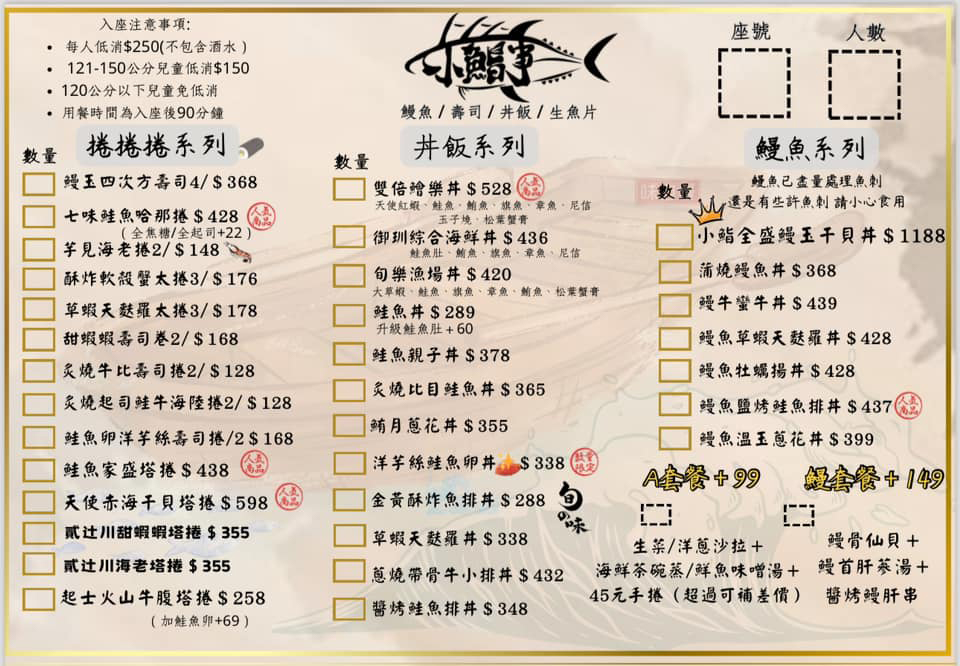 入座注意事項:
• 每人低消$250(不包含酒水)
• 121-150公分兒童低消$150
• 120公分以下兒童免低消
• 用餐時間為入座後90分鐘
小鮨事
鰻魚/壽司/丼飯/生魚片
座號
人數
捲捲捲系列
數量
鰻玉四次方壽司4/$368
七味鮭魚哈那捲$428
人氣商品
(全焦糖/全起司+22)
芋見海老捲2/$148
酥炸軟殼蟹太捲3/$176
草蝦天麩羅太捲3/$178
甜蝦蝦壽司卷2/$168
炙燒牛比壽司捲2/$128
炙燒起司鮭牛海陸捲2/$128
鮭魚卵洋芋絲壽司捲/2$168
鮭魚家盛塔捲$438
人氣商品
天使赤海干貝塔捲$598
人氣商品
貳辻川甜蝦蝦塔捲$355
貳辻川海老塔捲$355
起士火山牛腹塔捲$258
(加鮭魚卵+69)
丼飯系列
數量
雙倍繪樂丼$528
人氣商品
天使紅蝦、鮭魚、鮪魚、旗魚、章魚、尼信
玉子境、松葉蟹膏
御玔綜合海鮮丼$436
鮭魚肚、鮪魚、旗魚、章魚、尼信
旬樂漁場丼$420
大草蝦、鮭魚、旗魚、章魚、鮪魚、松葉蟹膏
鮭魚丼$289
升級鮭魚肚+60
鮭魚親子丼$378
炙燒比目鮭魚丼$365
鮪月蔥花丼$355
洋芋絲鮭魚卵丼$338
數量限定
金黃酥炸魚排丼$288
旬の味
草蝦天麩羅丼$338
蔥燒帶骨牛小排丼$432
醬烤鮭魚排丼$348
鰻魚系列
鰻魚已盡量處理魚刺
還是有些許魚刺 請小心食用
數量
小鮨全盛鰻玉干貝丼$1188
蒲燒鰻魚丼$368
鰻牛蠻牛丼$439
鰻魚草蝦天麩羅丼$428
鰻魚牡蠣揚丼$428
鰻魚鹽烤鮭魚排丼$437
人氣商品
鰻魚溫玉蔥花丼$399
A套餐+99
生菜/洋蔥沙拉+
海鮮茶碗蒸/鮮魚味噌湯+
45元手捲(超過可補差價)
鰻套餐+149
鰻骨仙貝+
鰻首肝蔘湯+
醬烤鰻肝串